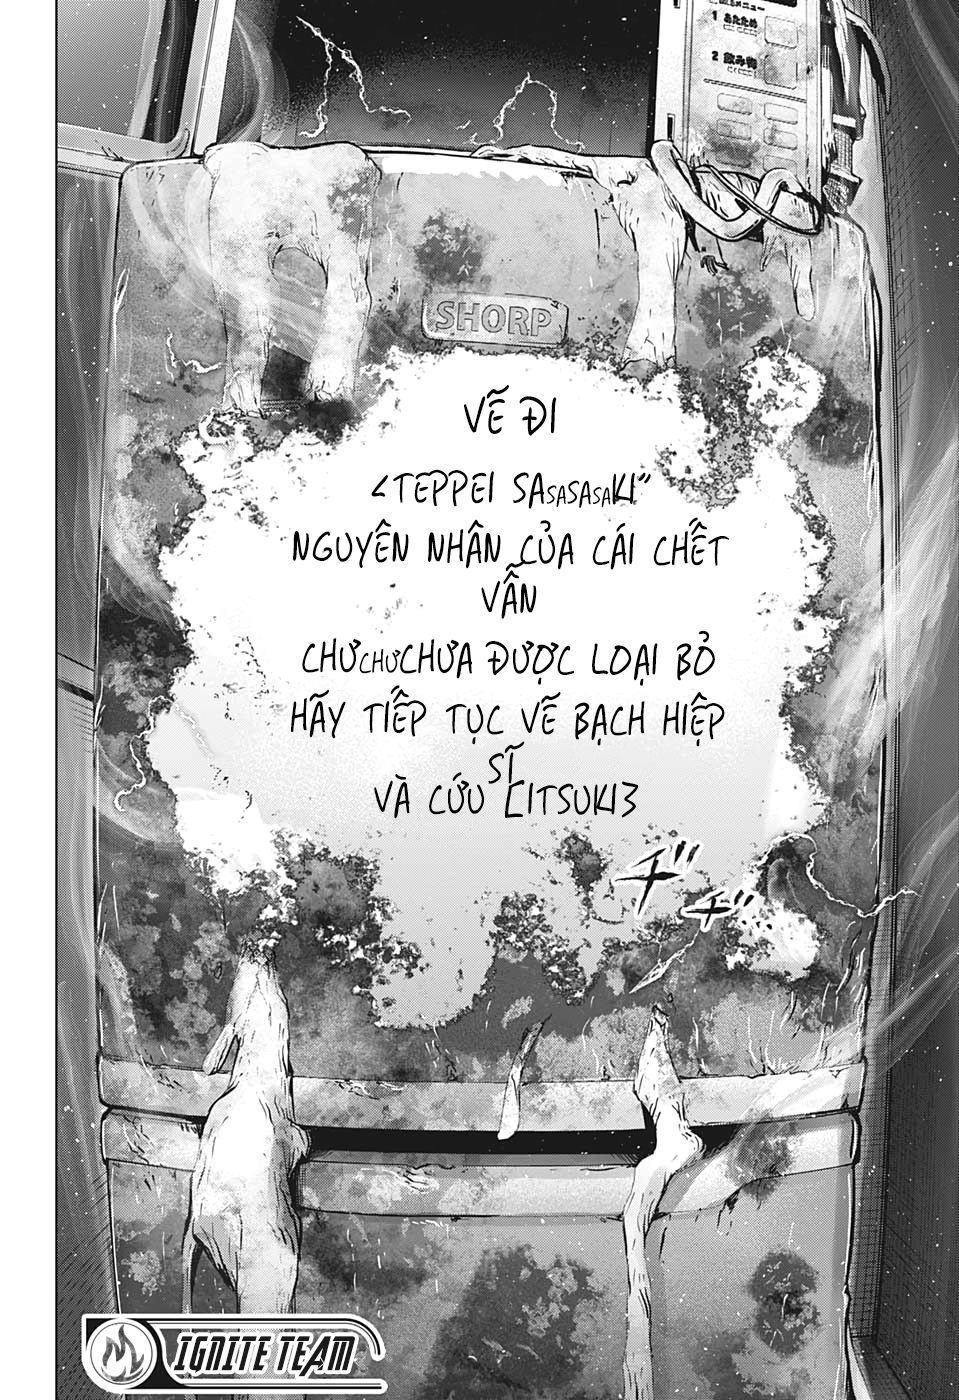 1 あたため
2 飲み物
SHORP
VẼ ĐI
<TEPPEI SASASASAKI"
NGUYÊN NHÂN CỦA CÁI CHẾT
VẪN
CHƯCHƯCHƯA ĐƯỢC LOẠI BỎ
HÃY TIẾP TỤC VẼ BẠCH HIỆP
SĨ
VÀ CỨU [ITSUKI3
ヂッ
ヂヂ…
IGNITE TEAM